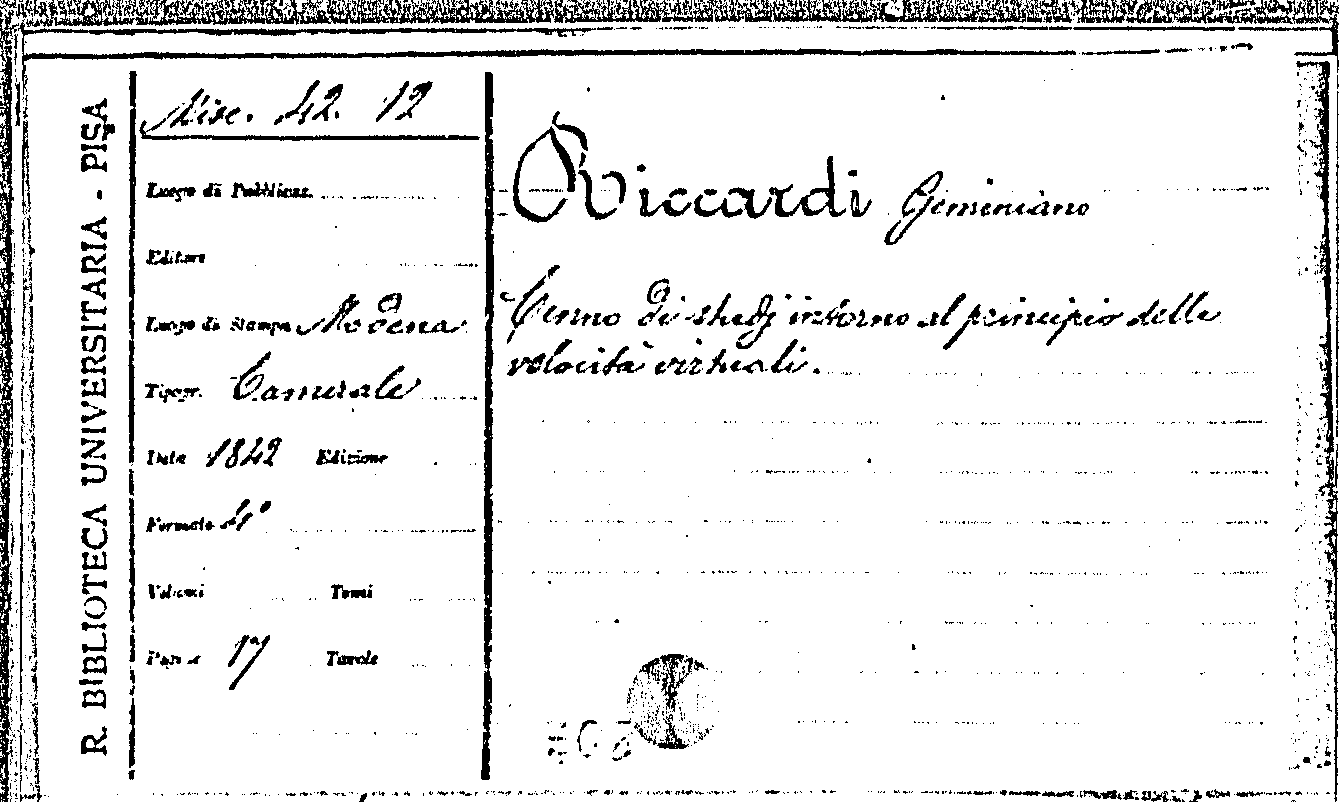 R. BIBLIOTECA UNIVERSITARIA - PISA
Misc. 42. 12
Luogo di Pubblicaz.
Editore
Luogo di Stampa Modena
Tipogr. Camerale
Data 1842 Edizione
Formato 4°
Volumi Tomi
Pagine 17 Tavole
Riccardi Geminiano
Cenno di studj intorno al principio delle
velocità virtuali.